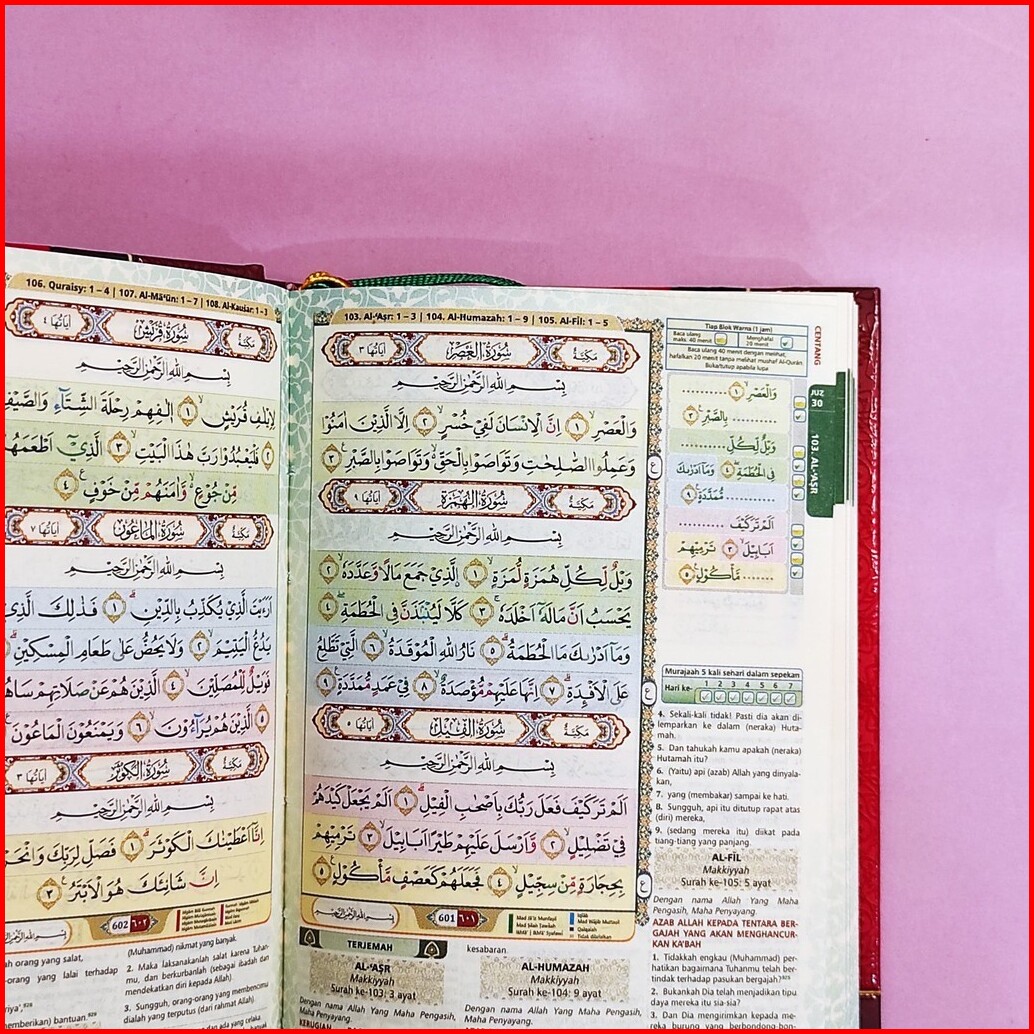 103. Al-'Aṣr: 1 – 3 | 104. Al-Humazah: 1 – 9 | 105. Al-Fīl: 1 – 5
مكية سورة العصر آياتها ٣
بِسْمِ اللّٰهِ الرَّحْمٰنِ الرَّحِيْمِ
وَالْعَصْرِۙ ١ اِنَّ الْاِنْسَانَ لَفِيْ خُسْرٍۙ ٢ اِلَّا الَّذِيْنَ اٰمَنُوْا
وَعَمِلُوا الصّٰلِحٰتِ وَتَوَاصَوْا بِالْحَقِّ ەۙ وَتَوَاصَوْا بِالصَّبْرِ ࣖ ٣
مكية سورة الهمزة آياتها ٩
بِسْمِ اللّٰهِ الرَّحْمٰنِ الرَّحِيْمِ
وَيْلٌ لِّكُلِّ هُمَزَةٍ لُّمَزَةٍۙ ١ الَّذِيْ جَمَعَ مَالًا وَّعَدَّدَهٗۙ ٢
يَحْسَبُ اَنَّ مَالَهٗٓ اَخْلَدَهٗۚ ٣ كَلَّا لَيُنْۢبَذَنَّ فِى الْحُطَمَةِۖ ٤
وَمَآ اَدْرٰىكَ مَا الْحُطَمَةُۗ ٥ نَارُ اللّٰهِ الْمُوْقَدَةُۙ ٦ الَّتِيْ تَطَّلِعُ
عَلَى الْاَفْـِٕدَةِۗ ٧ اِنَّهَا عَلَيْهِمْ مُّؤْصَدَةٌۙ ٨ فِيْ عَمَدٍ مُّمَدَّدَةٍ ࣖ ٩
مكية سورة الفيل آياتها ٥
بِسْمِ اللّٰهِ الرَّحْمٰنِ الرَّحِيْمِ
اَلَمْ تَرَ كَيْفَ فَعَلَ رَبُّكَ بِاَصْحٰبِ الْفِيْلِۗ ١ اَلَمْ يَجْعَلْ كَيْدَهُمْ
فِيْ تَضْلِيْلٍۙ ٢ وَّاَرْسَلَ عَلَيْهِمْ طَيْرًا اَبَابِيْلَۙ ٣ تَرْمِيْهِمْ
بِحِجَارَةٍ مِّنْ سِجِّيْلٍۙ ٤ فَجَعَلَهُمْ كَعَصْفٍ مَّأْكُوْلٍ ࣖ ٥
بِسْمِ اللّٰهِ الرَّحْمٰنِ الرَّحِيْمِ
601 ٦٠١
Tiap Blok Warna (1 jam)
Baca ulang maks. 40 menit
Menghafal 20 menit
Baca ulang 40 menit dengan melihat,
hafalkan 20 menit tanpa melihat mushaf Al-Qurān
Buka/tutup apabila lupa
CENTANG
JUZ 30
103. AL-'AṢR
وَالْعَصْرِۙ ١ ..........
.......... بِالصَّبْرِ ٣
وَيْلٌ لِّكُلِّ ..........
فِى الْحُطَمَةِۖ ٤ وَمَآ اَدْرٰىكَ
.......... مُّمَدَّدَةٍ ٩
اَلَمْ تَرَ كَيْفَ ..........
اَبَابِيْلَۙ ٣ تَرْمِيْهِمْ
.......... مَّأْكُوْلٍ ٥
Murajaah 5 kali sehari dalam sepekan
Hari ke- 1 2 3 4 5 6 7
TERJEMAH
AL-'AṢR
Makkiyyah
Surah ke-103: 3 ayat
Dengan nama Allah Yang Maha Pengasih,
Maha Penyayang.
KERUGIAN
kesabaran.
AL-HUMAZAH
Makkiyyah
Surah ke-104: 9 ayat
Dengan nama Allah Yang Maha Pengasih,
Maha Penyayang.
4. Sekali-kali tidak! Pasti dia akan di-
lemparkan ke dalam (neraka) Huta-
mah,
5. Dan tahukah kamu apakah (neraka)
Hutamah itu?
6. (Yaitu) api (azab) Allah yang dinyala-
kan,
7. yang (membakar) sampai ke hati.
8. Sungguh, api itu ditutup rapat atas
(diri) mereka,
9. (sedang mereka itu) diikat pada
tiang-tiang yang panjang.
AL-FĪL
Makkiyyah
Surah ke-105: 5 ayat
Dengan nama Allah Yang Maha
Pengasih, Maha Penyayang.
AZAB ALLAH KEPADA TENTARA BER-
GAJAH YANG AKAN MENGHANCUR-
KAN KA'BAH
1. Tidakkah engkau (Muhammad) per-
hatikan bagaimana Tuhanmu telah ber-
tindak terhadap pasukan bergajah?
2. Bukankah Dia telah menjadikan tipu
daya mereka itu sia-sia?
3. Dan Dia mengirimkan kepada me-
reka burung yang berbondong-bon-
106. Quraisy: 1 – 4 | 107. Al-Mā'ūn: 1 – 7 | 108. Al-Kauṡar: 1 – 3
مكية سورة قريش آياتها ٤
بِسْمِ اللّٰهِ الرَّحْمٰنِ الرَّحِيْمِ
لِاِيْلٰفِ قُرَيْشٍۙ ١ اٖلٰفِهِمْ رِحْلَةَ الشِّتَاۤءِ وَالصَّيْفِ
٢ فَلْيَعْبُدُوْا رَبَّ هٰذَا الْبَيْتِۙ ٣ الَّذِيْٓ اَطْعَمَهُمْ
مِّنْ جُوْعٍ ەۙ وَّاٰمَنَهُمْ مِّنْ خَوْفٍ ࣖ ٤
مكية سورة الماعون آياتها ٧
بِسْمِ اللّٰهِ الرَّحْمٰنِ الرَّحِيْمِ
اَرَءَيْتَ الَّذِيْ يُكَذِّبُ بِالدِّيْنِۗ ١ فَذٰلِكَ الَّذِيْ
يَدُعُّ الْيَتِيْمَۙ ٢ وَلَا يَحُضُّ عَلٰى طَعَامِ الْمِسْكِيْنِۗ
فَوَيْلٌ لِّلْمُصَلِّيْنَۙ ٤ الَّذِيْنَ هُمْ عَنْ صَلَاتِهِمْ
٥ الَّذِيْنَ هُمْ يُرَاۤءُوْنَۙ ٦ وَيَمْنَعُوْنَ الْمَاعُوْنَ
مكية سورة الكوثر آياتها ٣
بِسْمِ اللّٰهِ الرَّحْمٰنِ الرَّحِيْمِ
اِنَّآ اَعْطَيْنٰكَ الْكَوْثَرَۗ ١ فَصَلِّ لِرَبِّكَ
اِنَّ شَانِئَكَ هُوَ الْاَبْتَرُ ࣖ ٣
602 ٦٠٢
orang yang salat,
orang yang lalai terhadap
memberikan) bantuan.
(Muhammad) nikmat yang banyak.
2. Maka laksanakanlah salat karena Tuhan-
mu, dan berkurbanlah (sebagai ibadah dan
mendekatkan diri kepada Allah).
3. Sungguh, orang-orang yang membencimu
dialah yang terputus (dari rahmat Allah).